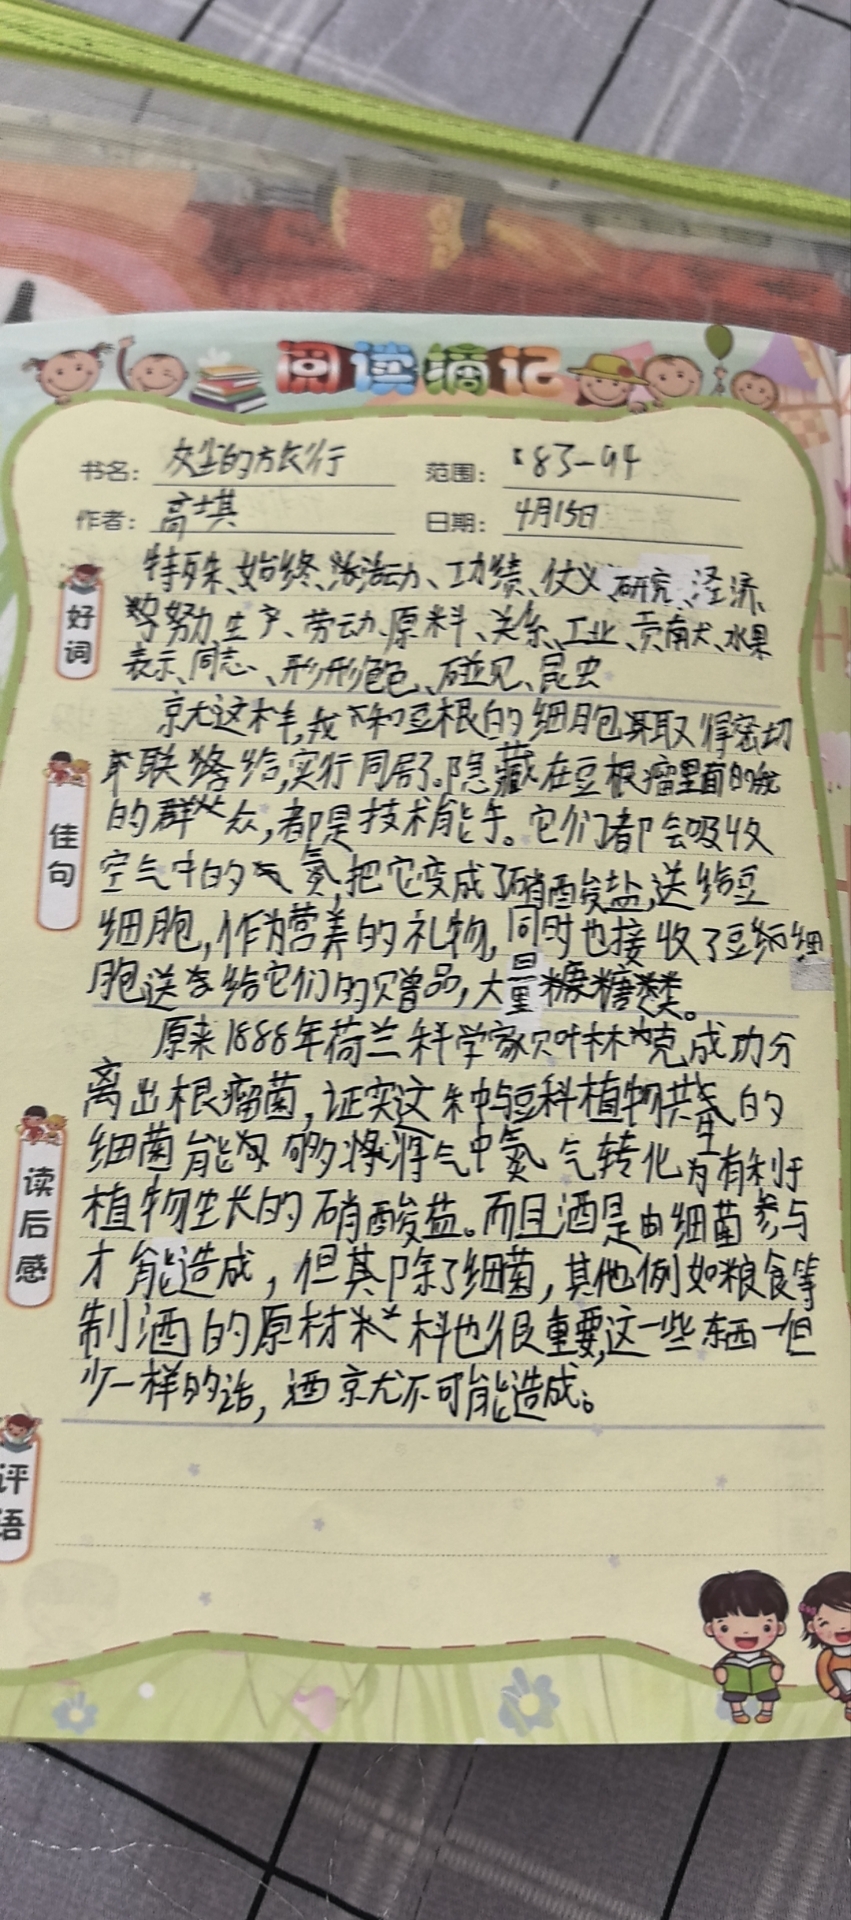 阅读摘记
书名： 的旅行 范围： 83-94
作者： 高士其 日期： 4月15日
好词
特殊、始终、活动、功绩、仗义、研究、经济、
努力生产、劳动、原料、关系、工业、贡献、水果
表示、同志、形形色色、碰见、昆虫
佳句
就这样，我和豆根的细胞取得密切
联络，实行同居了。隐藏在豆根瘤里面的
的群众，都是技术能手。它们都会吸收
空气中的氮，把它变成了硝酸盐，送给豆
细胞，作为营养的礼物，同时也接收了豆细
胞送给它们的赠品，大量糖类。
读后感
原来1888年荷兰科学家贝叶林克成功分
离出根瘤菌，证实这种与豆科植物共生的
细菌能够将气中氮气转化为有利于
植物生长的硝酸盐。而且酒是由细菌参与
才能造成，但其除了细菌，其他例如粮食等
制酒的原材料也很重要，这一些东西一但
少一样的话，酒就不可能造成。
评语